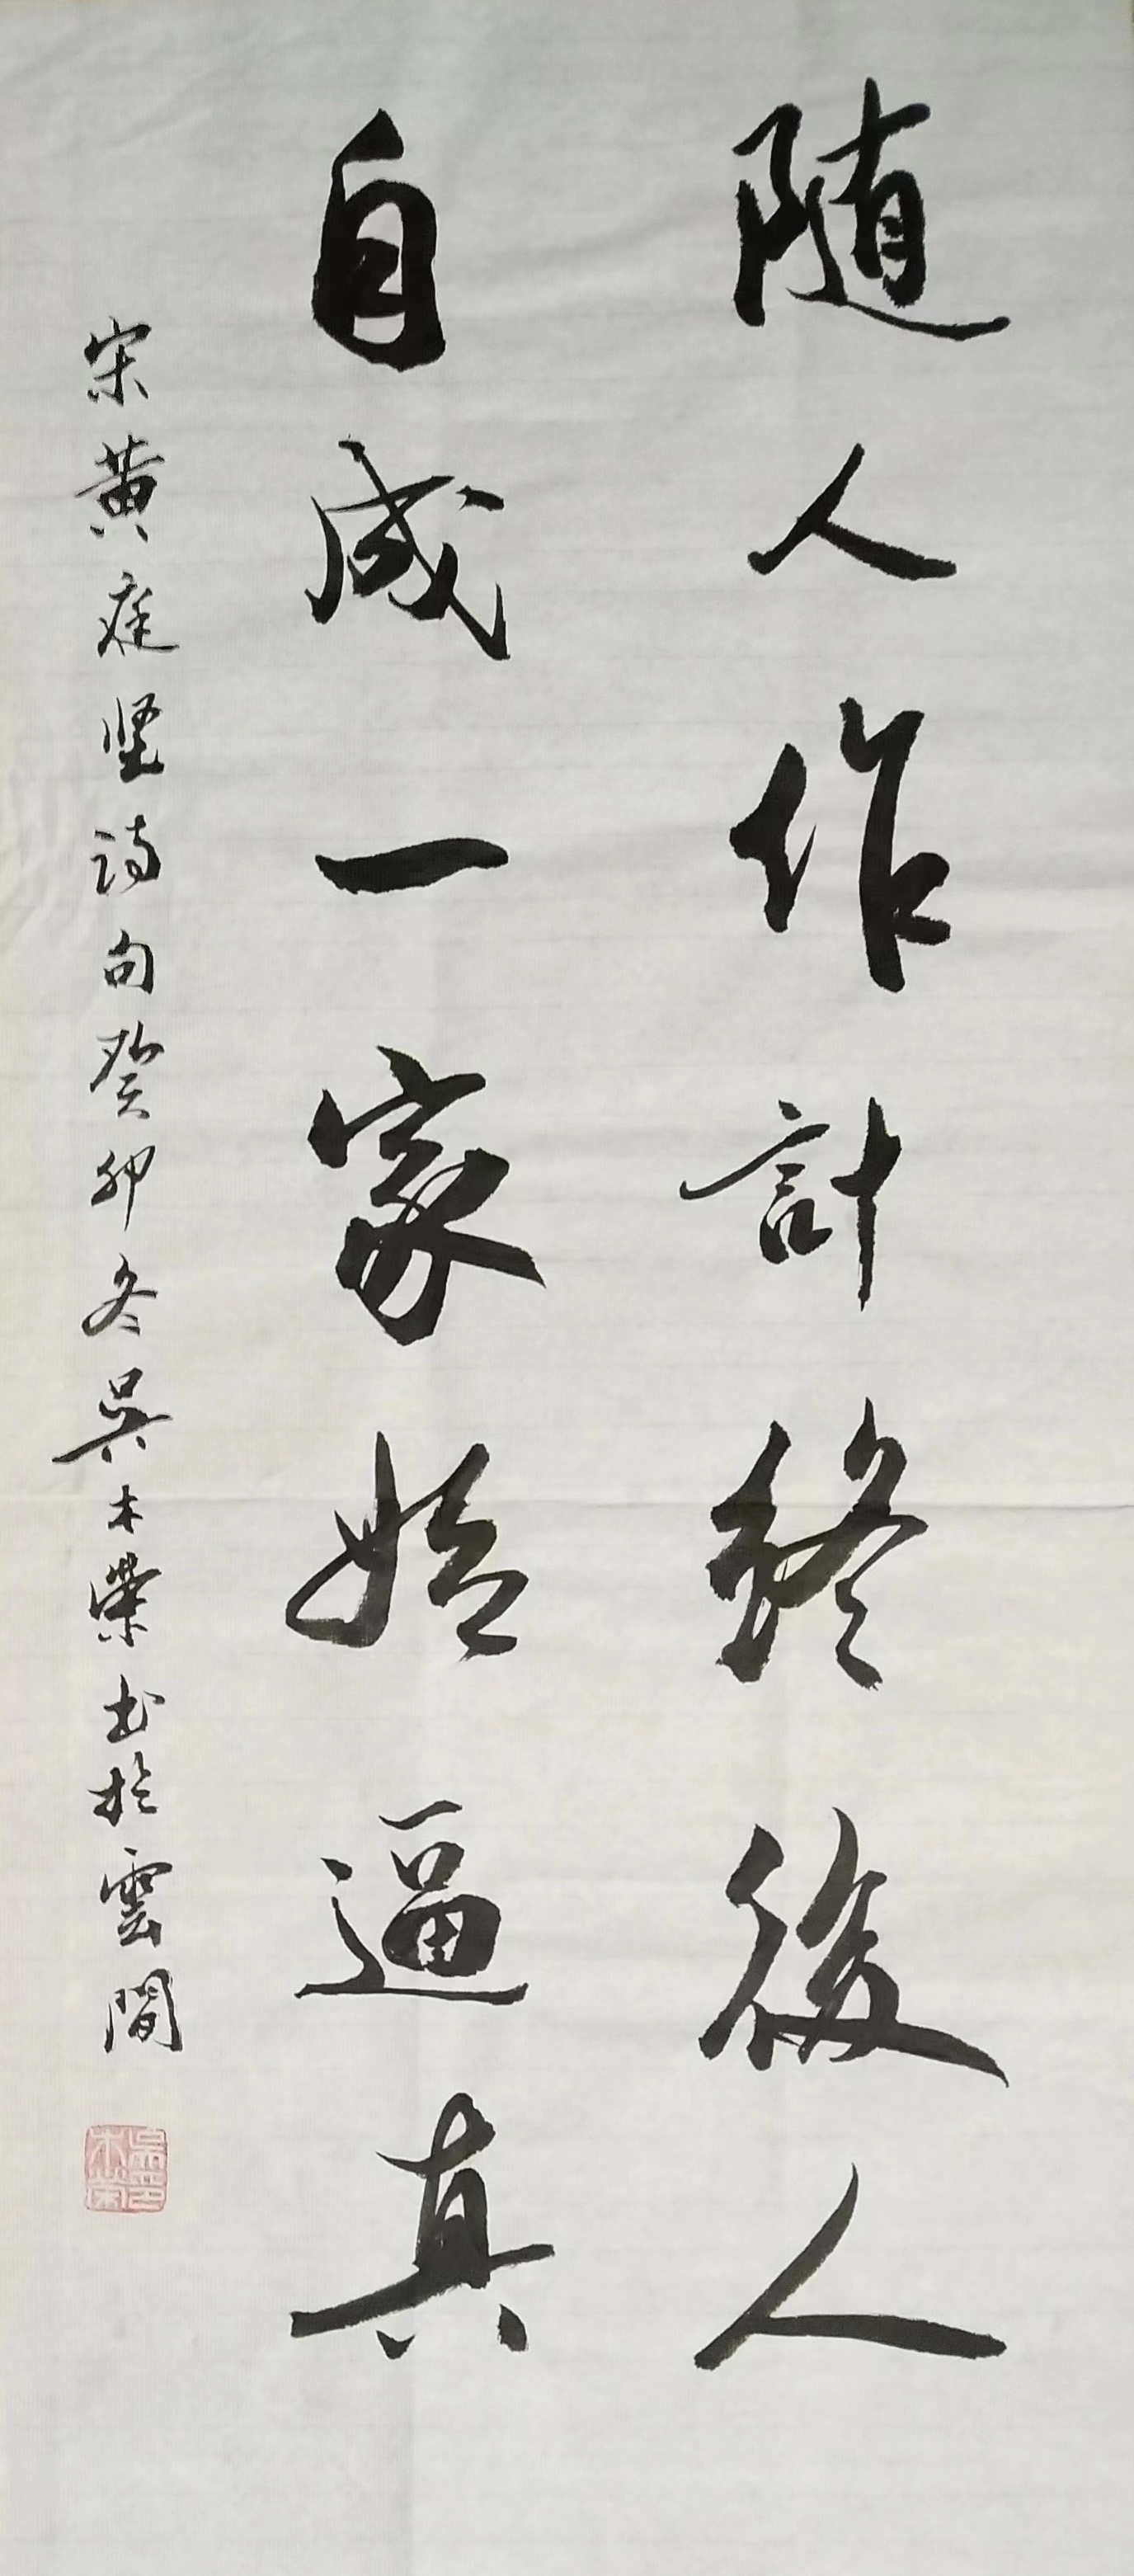 随人作計終後人
自成一家始逼真
宋黄庭坚诗句癸卯冬吳木榮书於雲間
吳木榮印